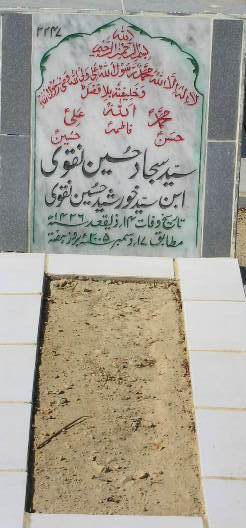 ۲۲۴۷
یا اللہ
بسم اللہ الرحمن الرحیم
لا الہ الا اللہ محمد رسول اللہ علی ولی اللہ وصی رسول اللہ
و خلیفتہ بلا فصل
محمد اللہ علی
حسن فاطمہ حسین
سید سجاد حسین نقوی
ابن سید خورشید حسین نقوی
تاریخ وفات ۱۴ ذیقعد ۱۴۲۶ھ
مطابق ۱۷ دسمبر ۲۰۰۵ء بروز ہفتہ